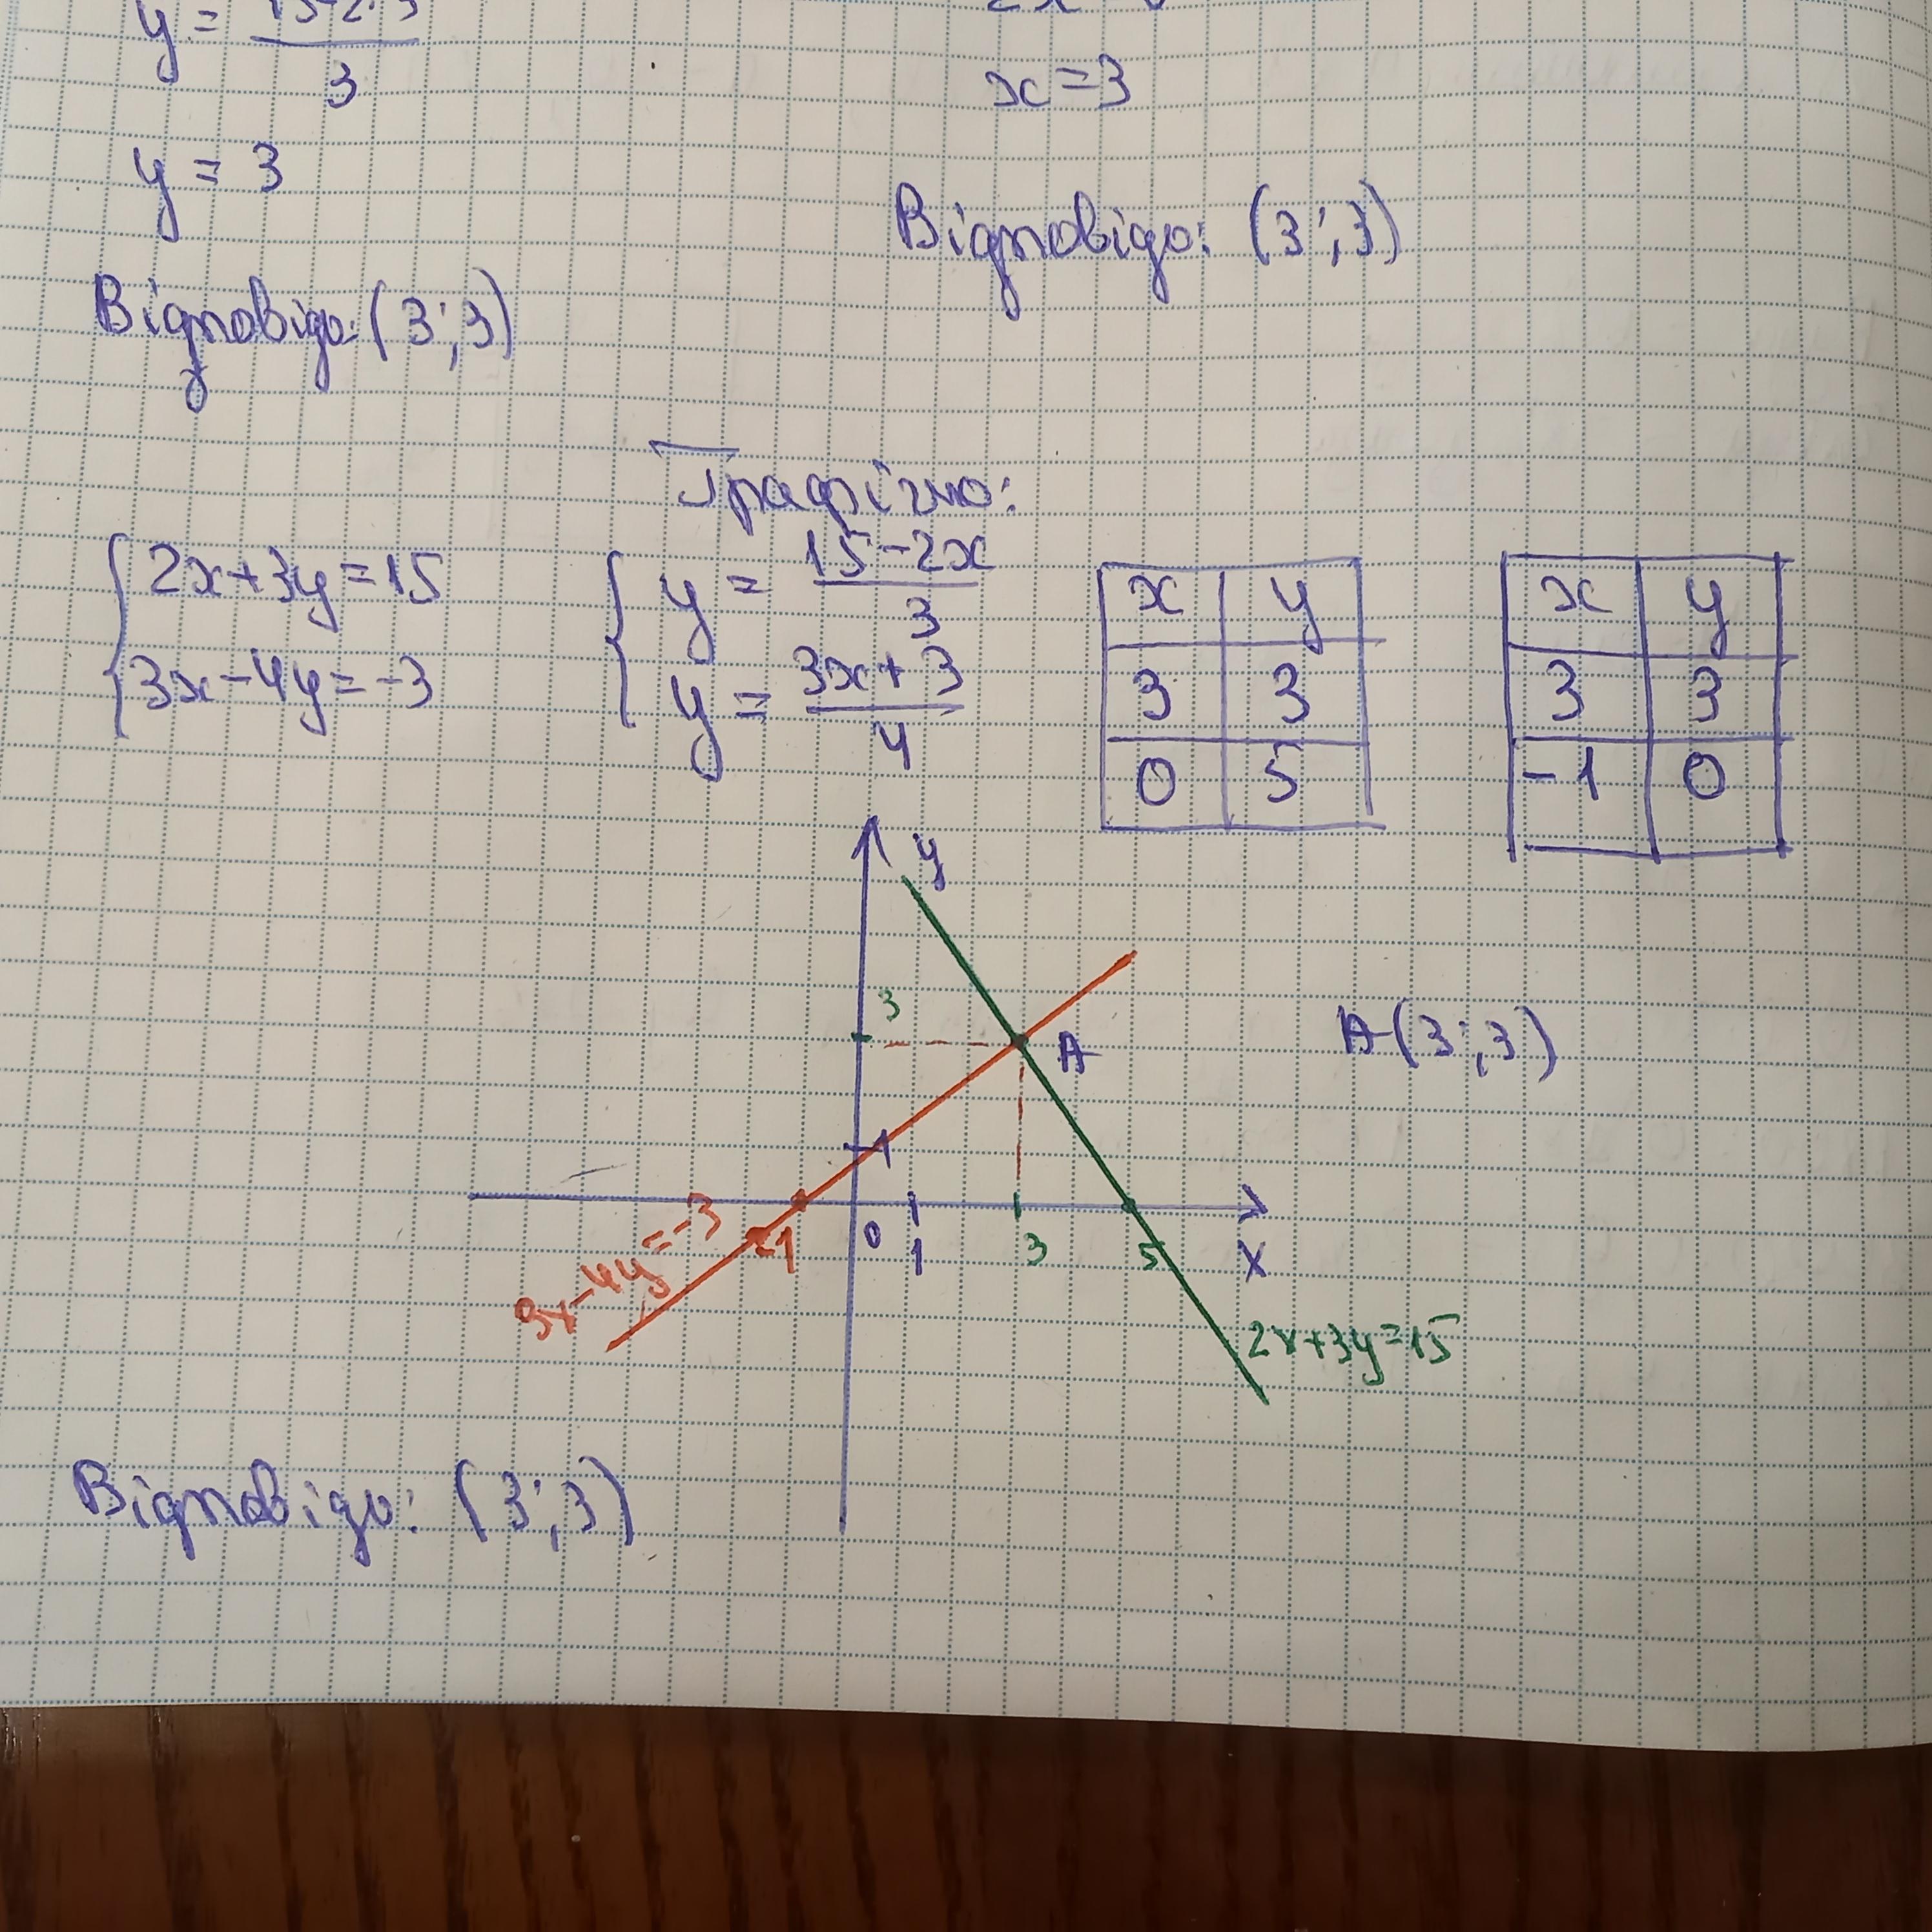 y = 15-2·3 / 3
x = 3
y = 3
Відповідь: (3; 3)
Відповідь: (3; 3)
Графічно:
{ 2x+3y=15
3x-4y=-3
{ y = 15-2x / 3
y = 3x+3 / 4
x y
3 3
0 5
x y
3 3
-1 0
y
3
A
A(3; 3)
1
-1 0 1 3 5 x
3x-4y=-3
2x+3y=15
Відповідь: (3; 3)